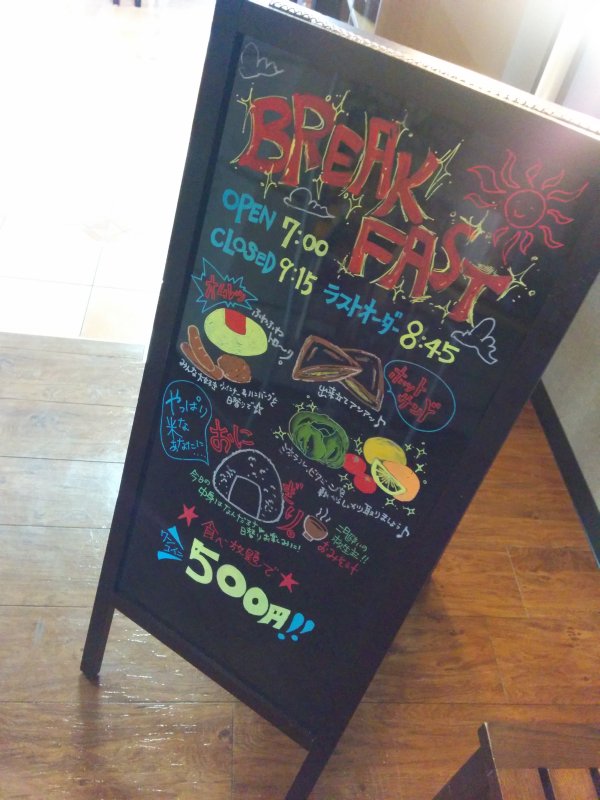 BREAK
FAST
OPEN 7:00
CLOSED 9:15
ラストオーダー 8:45
オムレツ
ふわふわ
トロ〜り。
みんな大好き ウインナー&ハンバーグを
日替りで☆
ホット
サンド
出来立てアツアツ♪
やっぱり
米な
あなたに…
おにぎり。
ミネラル、ビタミンを
朝からしっかり取りましょう♪
今日の
中身はなんだろナ?
日替りお楽しみに!
温まりの
おみそ汁
★食べ放題で★
ワン
コイン
500円!!